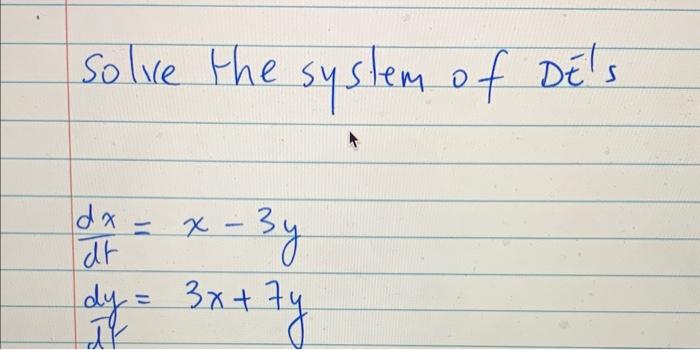 Solve the system of DE's
dx/dt = x - 3y
dy/dt = 3x + 7y